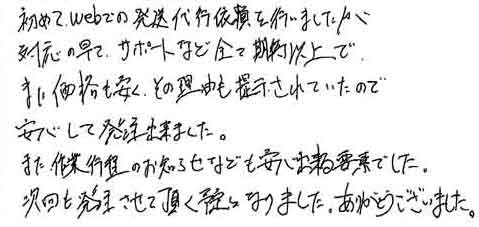 初めて、webでの発送代行依頼を行いましたが
対応の早で、サポートなど全て期待以上で、
また価格も安く、その理由も提示されていたので
安心して発注出来ました。
また作業行程のお知らせなども安心出来る要素でした。
次回も発注させて頂く予定になりました。ありがとうございました。